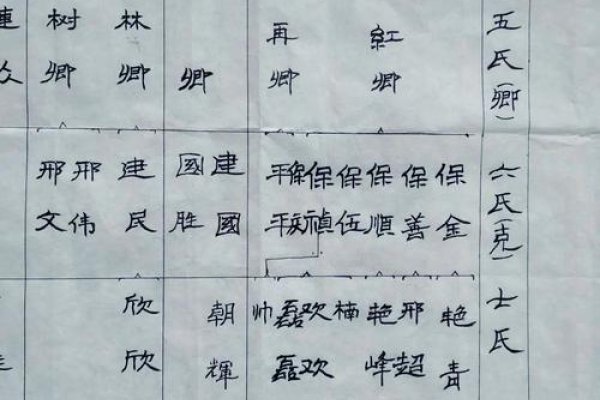 五氏(卿)
紅卿
再卿
卿
林卿
树卿
六氏(克)
保金
保善
保順
保伍
保禎
建國
國胜
建民
邢伟
邢文
士氏
艳青
邢超
艳峰
楠
欢欢
磊磊
帅
朝輝
欣欣